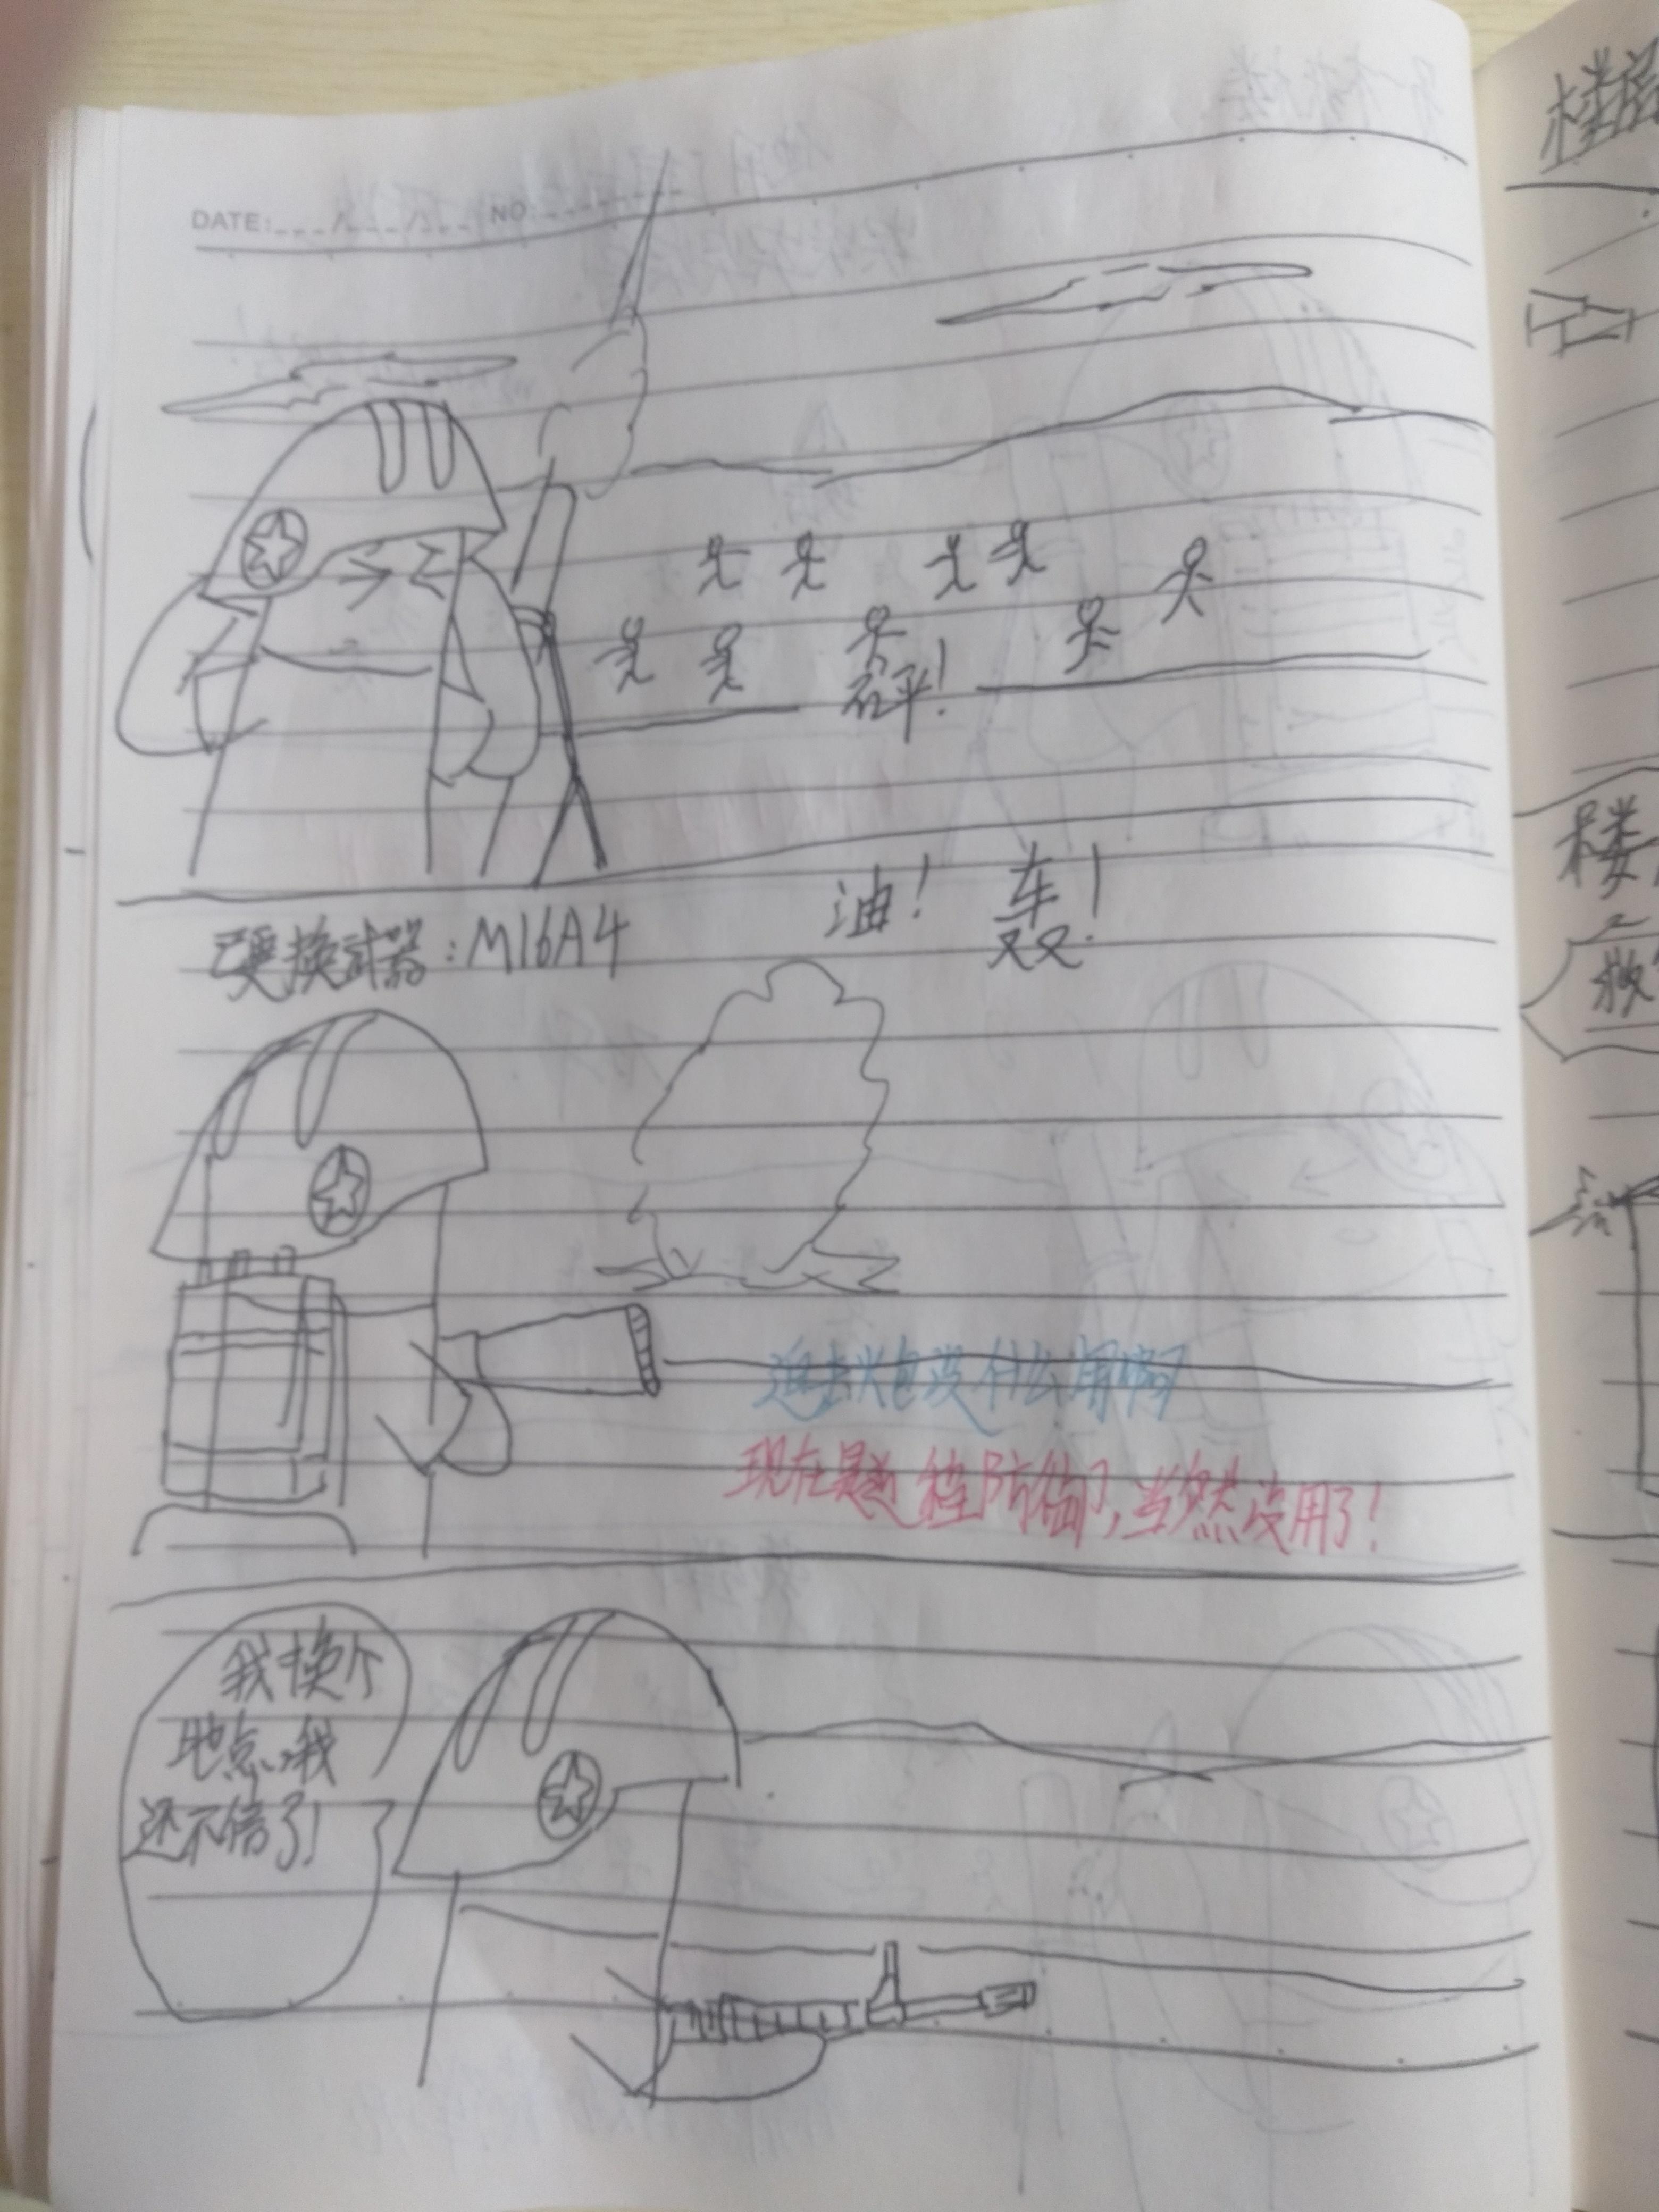 DATE:___/___/___ NO
砰!
油! 轰!
已更换武器:M16A4
迫击火包没什么用啊
现在是 楼防御,当然没用了!
我换个
地点,我
还不信了!
楼
楼
救